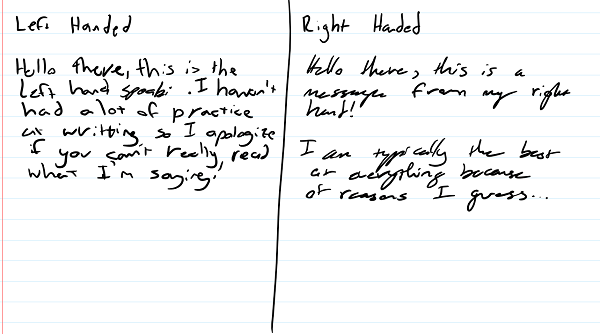 Left Handed
Hello there, this is the
left hand . I haven't
had a lot of practice
at writting so I apologize
if you can't really read
what I'm saying!
Right Handed
Hello there, this is a
message from my right
hand!
I am typically the best
at everything because
of reasons I guess...